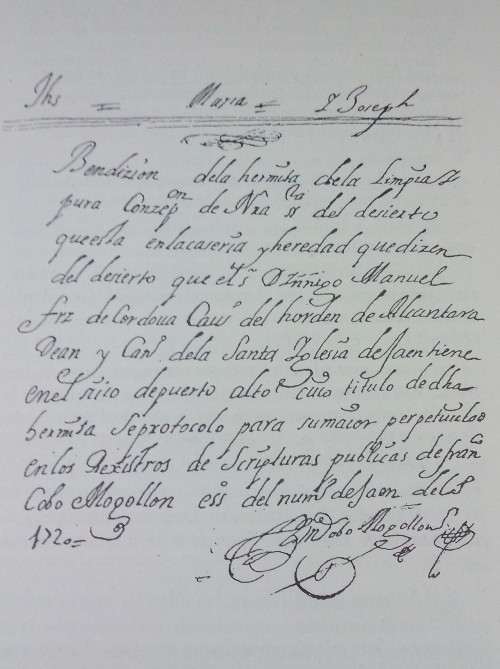 Jhs = Maria = Y Joseph
Bendizion dela hermita dela Limpia Y
pura Conzepon de Nra Sra del desierto
que esta en la caseria y heredad que dizen
del desierto que el Sr D Yñigo Manuel
frz de Cordoua Cauo del horden de Alcantara
Dean y Cano dela Santa Yglesia de Jaen tiene
en el sitio de puerto alto Cuio titulo de dha
hermita Se protocolo para su maior perpetuidad
en los Rexistros de Scripturas publicas de franco
Cobo Mogollon esno del numo de Jaen del
1720 =
Cobo Mogollon